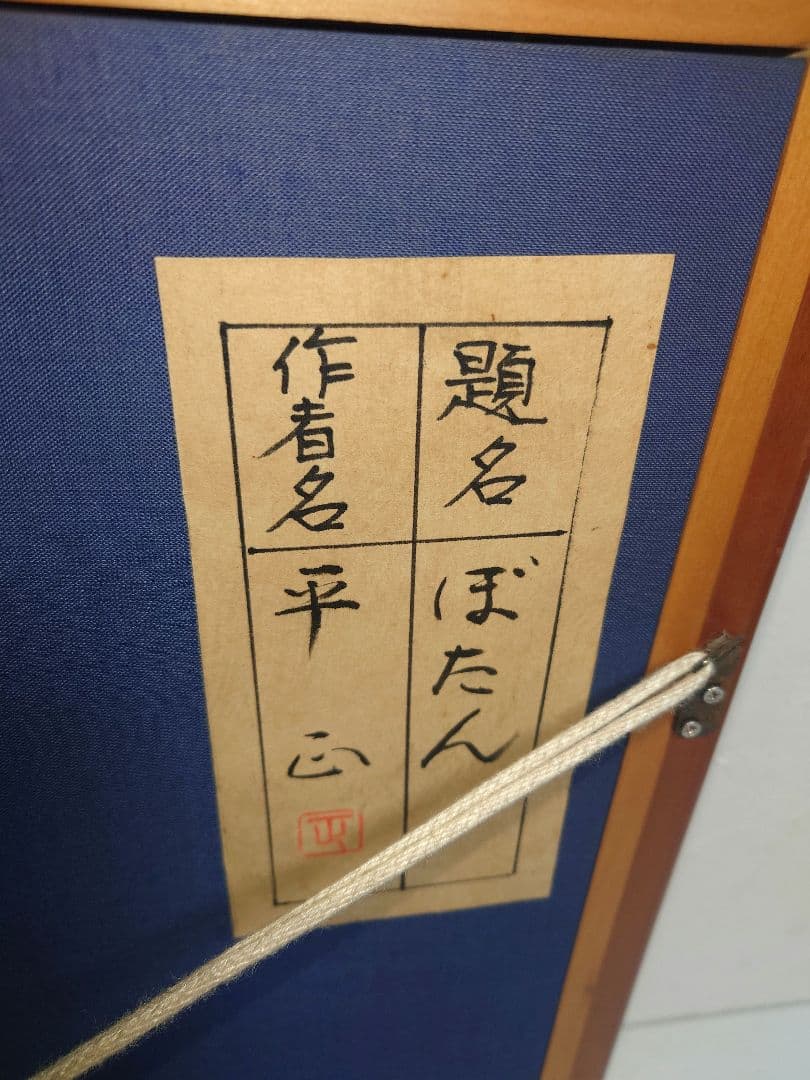 題名 ぼたん
作者名 平 正
正